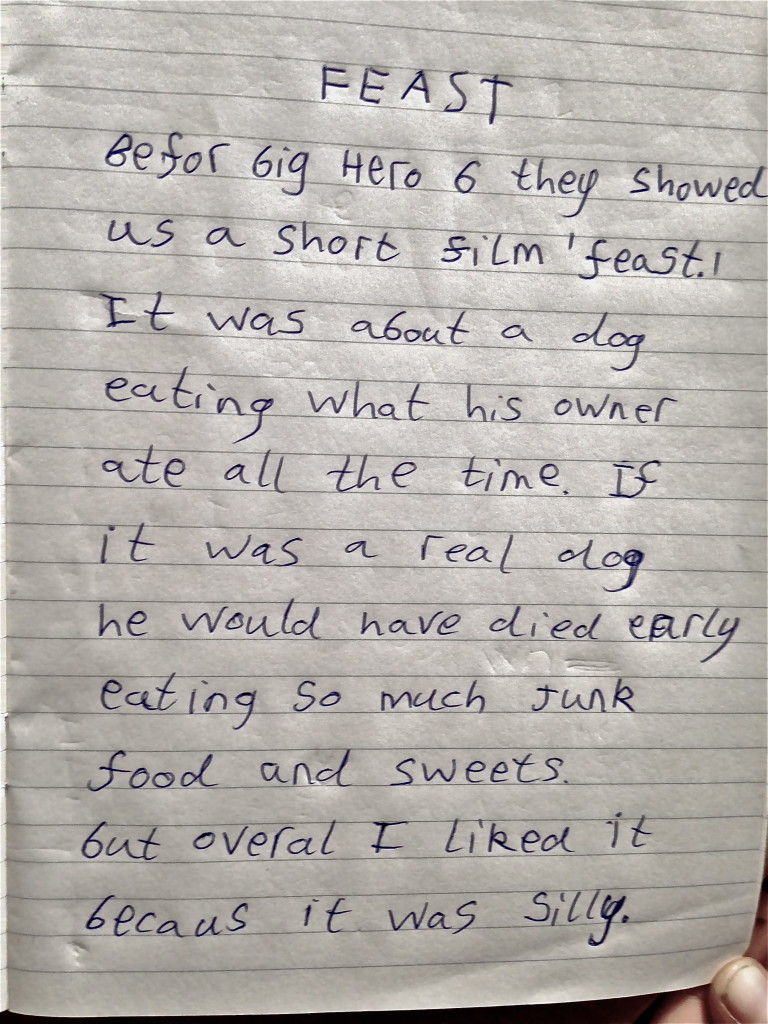 FEAST
Befor big Hero 6 they showed
us a short film 'feast.'
It was about a dog
eating what his owner
ate all the time. If
it was a real dog
he would have died early
eating so much junk
food and sweets.
but overal I liked it
becaus it was silly.